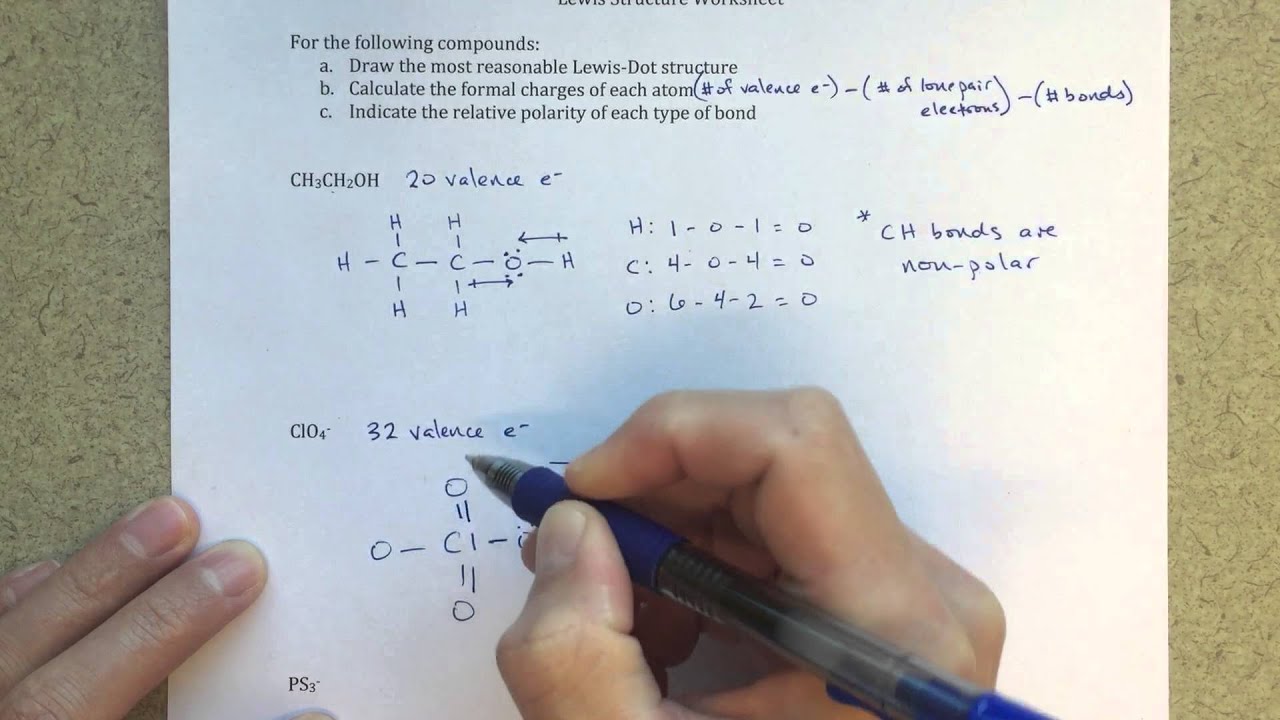 Lewis Structure Worksheet
For the following compounds:
a. Draw the most reasonable Lewis-Dot structure
b. Calculate the formal charges of each atom (# of valence e-) - (# of lone pair electrons) - (# bonds)
c. Indicate the relative polarity of each type of bond
CH₃CH₂OH 20 valence e-
H H
H - C - C - O - H
H H
H: 1 - 0 - 1 = 0
C: 4 - 0 - 4 = 0
O: 6 - 4 - 2 = 0
* CH bonds are
non-polar
ClO₄⁻ 32 valence e-
O
O - Cl -
O
PS₃⁻